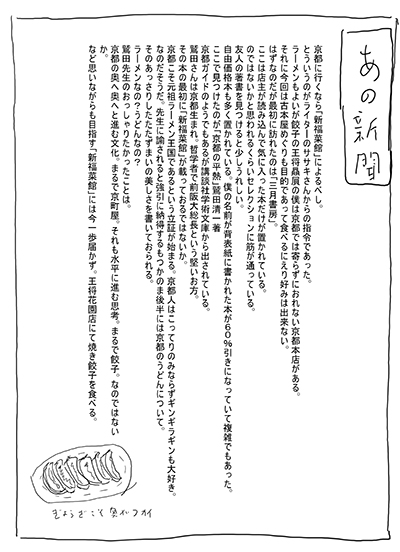 あの新聞
京都に行くなら「新福菜館」によるべし。
とういうのがライターのササキさんからの指令であった。
ラーメンもよいが餃子の王将贔屓の僕は京都では寄らずにおれない京都本店がある。
それに今回は古本屋めぐりも目的であって食べるにえり好みは出来ない。
はずなのだが最初に訪れたのは「三月書房」。
ここは店主が読み込んで気に入った本だけが置かれている。
のではないかと思われるくらいセレクションに筋が通っている。
友人の著書を見つけると少しうれしい。
自由価格本も多く置かれている。僕の名前が背表紙に書かれた本が60%引きになっていて複雑でもあった。
ここで見つけたのが「京都の平熱」鷲田清一著
京都ガイドのようでもあるが講談社学術文庫から出されている。
鷲田さんは京都生まれ、哲学者で前阪大総長という堅いお方。
その本の最初に「新福菜館」が載っておるではないか。
京都こそ元祖ラーメン王国であるという立証が始まる。京都人はこってりのみならずギンギラギンも大好き。
なのだそうだ。先生に諭されると強引に納得するもつかのま後半には京都のうどんについて。
そのあっさりしたたたずまいの美しさを書いておられる。
ラーメンなの?うどんなの?
鷲田先生のおっしゃりたかったことは。
京都の奥へ奥へと進む文化。まるで京町屋。それも水平に進む思考。まるで餃子。なのではない
か。
など思いながらも目指す「新福菜館」には今一歩届かず。王将花園店にて焼き餃子を食べる。
ぎょうざこそ